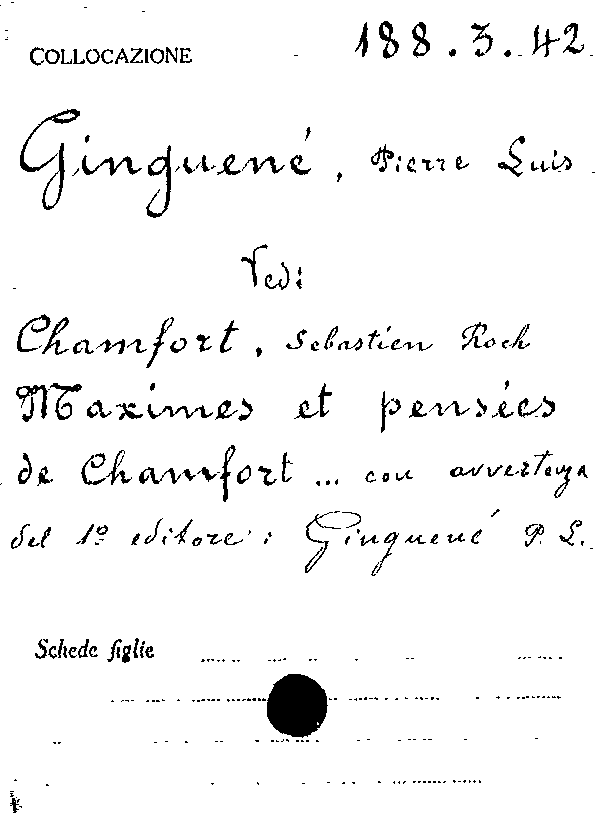 COLLOCAZIONE 188.3.42
Ginguené, Pierre Luis
Vedi
Chamfort, Sebastien Roch
Maximes et pensées
de Chamfort ... con avvertenza
del 1º editore: Ginguené P. L.
Schede figlie